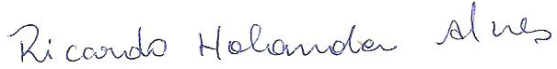 Ricardo Holanda Alves